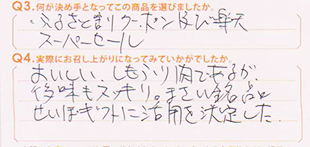 Q3.何が決め手となってこの商品を選びましたか。
ふるさと割りクーポン及び楽天
スーパーセール
Q4.実際にお召し上がりになってみていかがでしたか。
おいしい、しもふり肉であるが、
後味もスッキリ。まさに銘品
せいぼギフトに活用を決定した